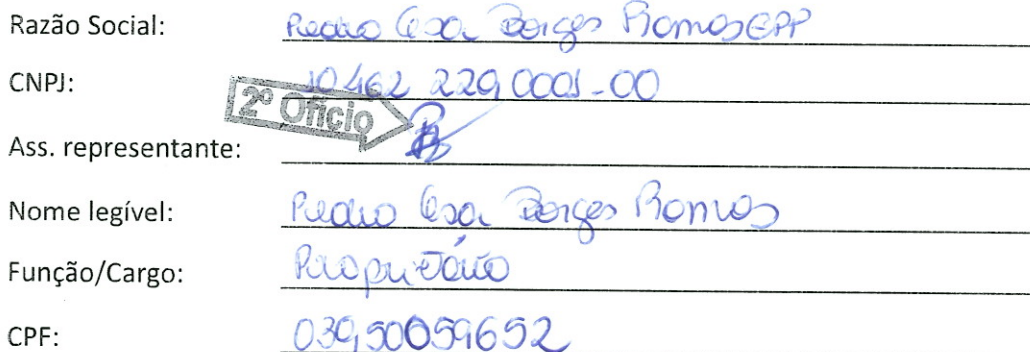 Razão Social: Pedro Cesar Borges Ramos EPP
CNPJ: 10.462.229.0001-00
2º Ofício
Ass. representante:
Nome legível: Pedro Cesar Borges Ramos
Função/Cargo: Proprietário
CPF: 03950059652